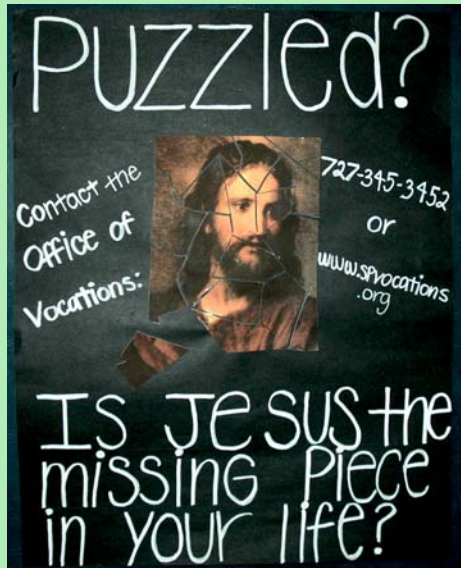 PUZZLED?
Contact the
Office of
Vocations:
727-345-3452
or
www.spvocations
.org
Is Jesus the
missing piece
in your life?